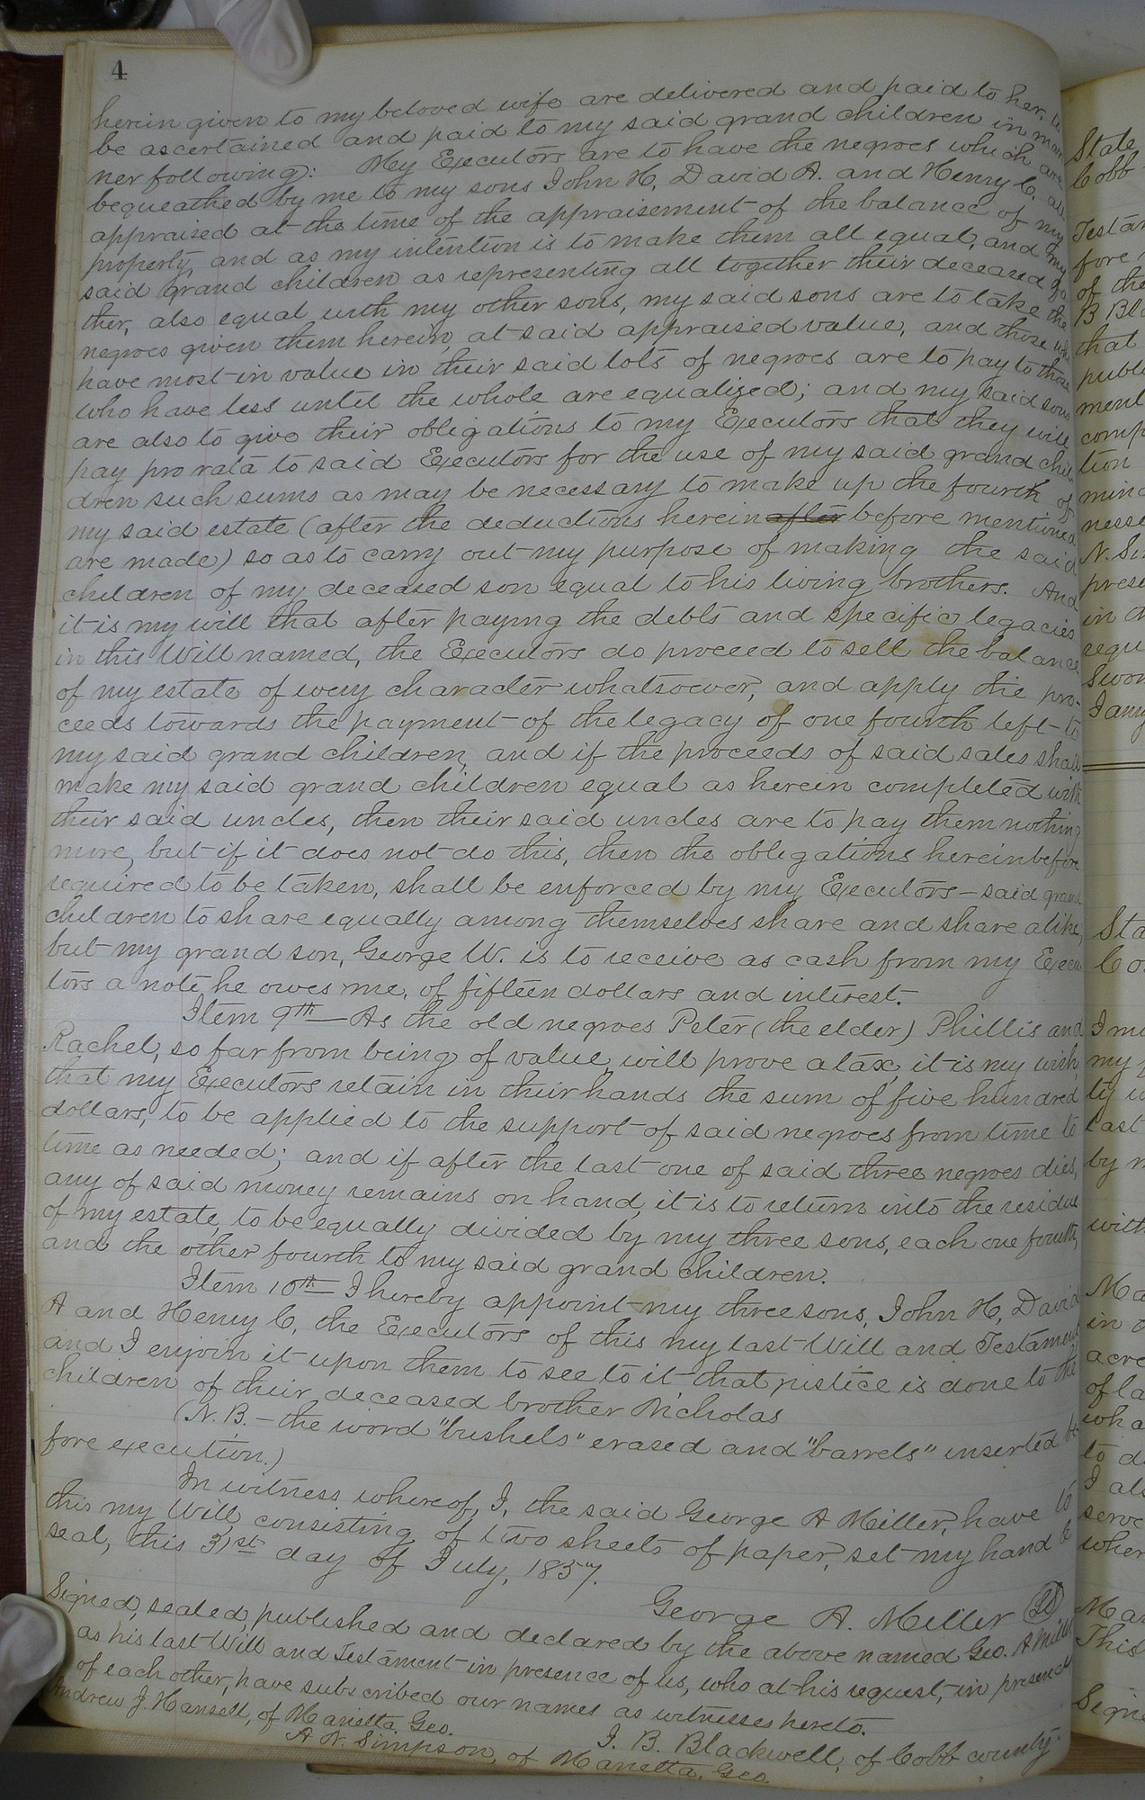 4
herein given to my beloved wife are delivered and paid to her, to
be ascertained and paid to my said grand children in man
ner following: My Executors are to have the negroes which are
bequeathed by me to my sons John H, David A. and Henry C. all
appraised at the time of the appraisement of the balance of my
property, and as my intention is to make them all equal, and my
said grand children as representing all together their deceased fa
ther, also equal with my other sons, my said sons are to take the
negroes given them herein, at said appraised value, and those who
have most in value in their said lots of negroes are to pay to those
who have less until the whole are equalized; and my said sons
are also to give their obligations to my Executors that they will
pay pro rata to said Executors for the use of my said grand chil
dren such sums as may be necessary to make up the fourth of
my said estate (after the deductions herein after before mentioned
are made) so as to carry out my purpose of making the said
children of my deceased son equal to his living brothers. And
it is my will that after paying the debts and specific legacies
in this Will named, the Executors do proceed to sell the balance
of my estate of every character whatsoever, and apply the pro-
ceeds towards the payment of the legacy of one fourth left to
my said grand children, and if the proceeds of said sales shall
make my said grand children equal as herein completed with
their said uncles, then their said uncles are to pay them nothing
more, but if it does not do this, then the obligations hereinbefore
required to be taken, shall be enforced by my Executors - said grand
children to share equally among themselves share and share alike,
but my grand son, George W. is to receive as cash from my Execu
tors a note he owes me, of fifteen dollars and interest.
Item 9th - As the old negroes Peter (the elder) Phillis and
Rachel, so far from being of value, will prove a tax, it is my wish
that my Executors retain in their hands the sum of five hundred
dollars, to be applied to the support of said negroes from time to
time as needed; and if after the last one of said three negroes dies,
any of said money remains on hand, it is to return into the residue
of my estate, to be equally divided by my three sons, each one fourth,
and the other fourth to my said grand children.
Item 10th - I hereby appoint my three sons, John H, David
A and Henry C, the Executors of this my last Will and Testament
and I enjoin it upon them to see to it, that justice is done to the
children of their deceased brother Nicholas
(N.B. - the word "bushels" erased and "barrels" inserted be
fore execution.)
In witness whereof, I, the said George A Miller, have to
this my Will, consisting of two sheets of paper, set my hand &
seal, this 31st day of July, 1857.
George A. Miller
Signed, sealed, published and declared by the above named Geo. A Miller
as his last Will and Testament in presence of us, who at his request, in presence
of each other, have subscribed our names as witnesses hereto.
Andrew J. Hansell, of Marietta, Geo.
J. B. Blackwell, of Cobb county.
A. N. Simpson, of Marietta, Geo.
State
Cobb
fore
of the
B Bla
that